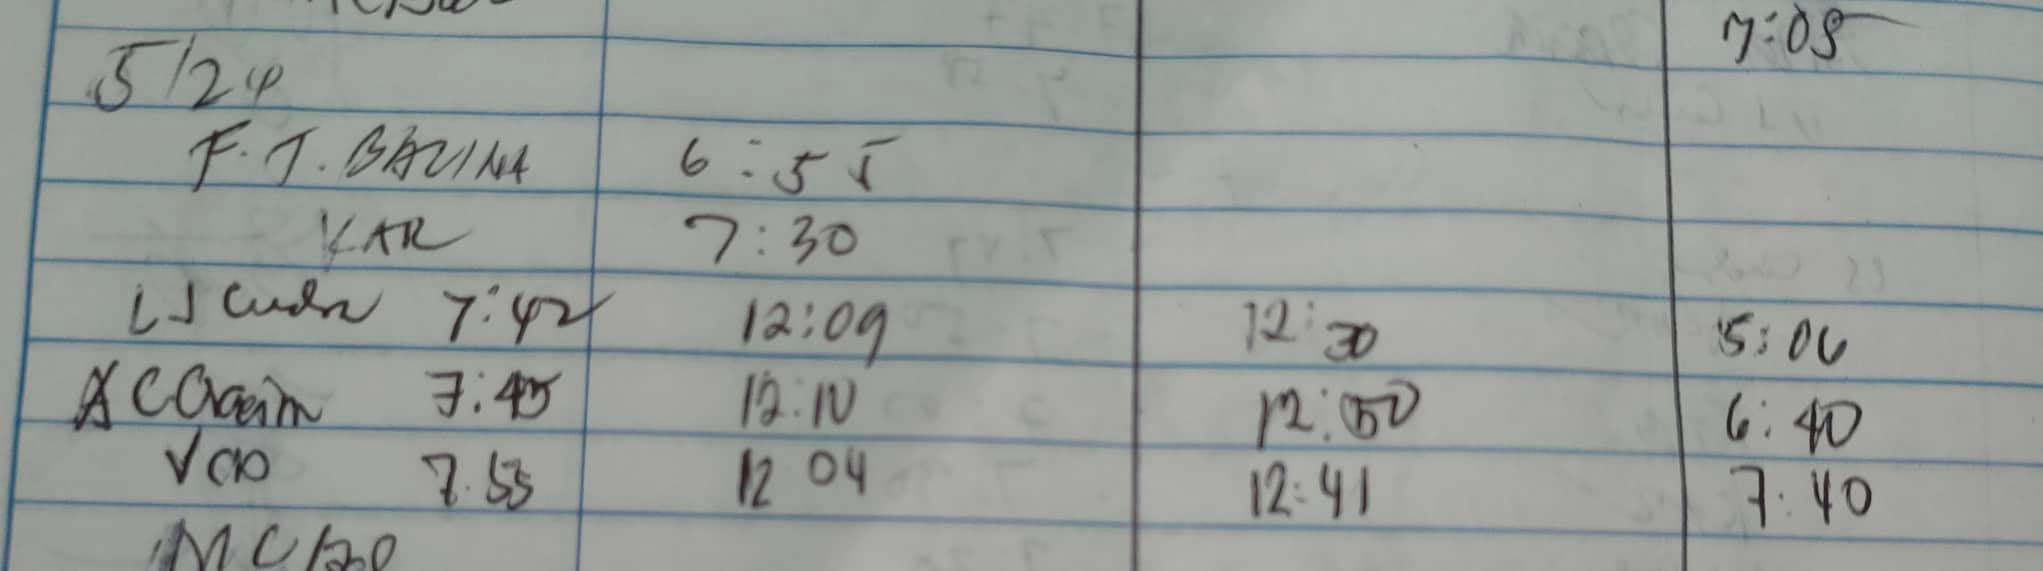 7:05
5/24
F.T. BAUINA 6:55
KAR 7:30
LJ 7:42 12:09 12:30 5:06
AC 7:45 12:10 12:50 6:40
VCD 7.55 12 04 12:41 7:40